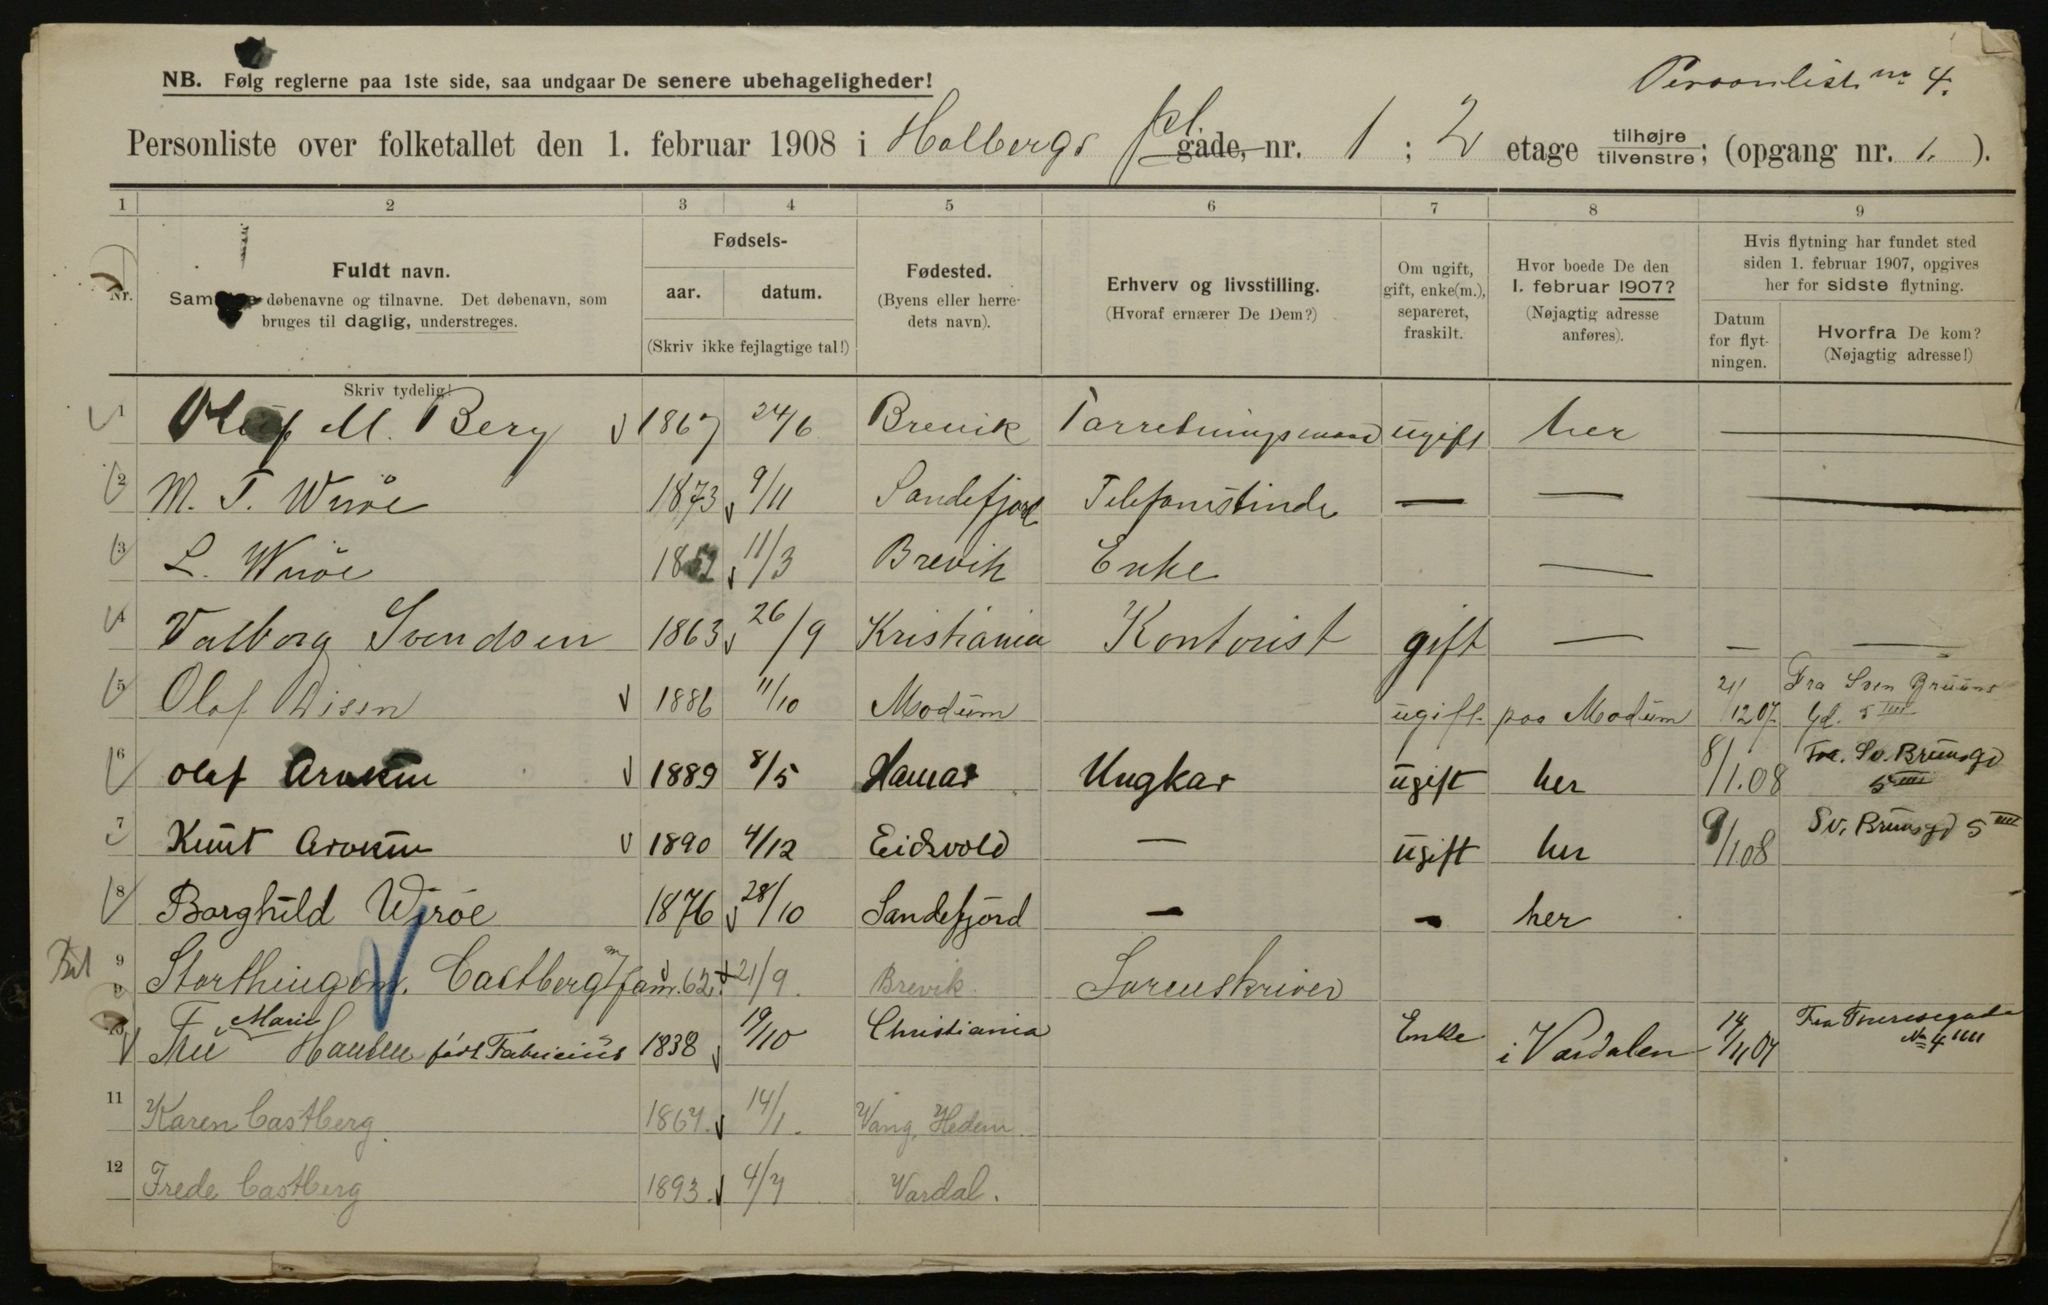 Personlist nr. 4.
NB. Følg reglerne paa 1ste side, saa undgaar De senere ubehageligheder!
Personliste over folketallet den 1. februar 1908 i Holbergs pl. gade, nr. 1 ; 2 etage tilhøjre tilvenstre; (opgang nr. 1. ).
1 2 3 4 5 6 7 8 9
Nr.
Fuldt navn.
døbenavne og tilnavne. Det døbenavn, som
bruges til daglig, understreges.
Skriv tydelig!
Fødsels-
aar. datum.
(Skriv ikke fejlagtige tal!)
Fødested.
(Byens eller herre-
dets navn).
Erhverv og livsstilling.
(Hvoraf ernærer De Dem?)
Om ugift,
gift, enke(m.),
separeret,
fraskilt.
Hvor boede De den
1. februar 1907?
(Nøjagtig adresse
anføres).
Hvis flytning har fundet sted
siden 1. februar 1907, opgives
her for sidste flytning.
Datum
for flyt-
ningen.
Hvorfra De kom?
(Nøjagtig adresse!)
1 Oluf M. Berg 1867 24/6 Brevik Forretningsmand ugift her —
2 M. T. Wirøe 1873 9/11 Sandefjord Telefonistinde — — —
3 L. Wirøe 1852 11/3 Brevik Enke —
4 Valborg Svendsen 1863 26/9 Kristiania Kontorist gift — — —
5 Olaf Disen 1886 11/10 Modum ugift paa Modum 21/12 07. Fra Sven Bruuns
gd. 5 III
6 Olaf 1889 8/5 Hamar Ungkar ugift her 8/1.08 Fra. Sv. Brunsgd
5 III
7 Knut 1890 4/12 Eidsvold — ugift her 9/1 08 Sv. Brunsgd 5 III
8 Borghild Wirøe 1876 28/10 Sandefjord — - her
9 Storthingsm. Castberg m/ fam. 62. 21/9. Brevik. Sorenskriver
10 Fru Marie Hansen født Fabricius 1838 19/10 Christiania Enke i Vardalen 14/11 07 Fra Theresegade
No 4 IIII
11 Karen Castberg. 1867. 14/1. Vang, Hedem.
12 Frede Castberg 1893. 4/7 Vardal.